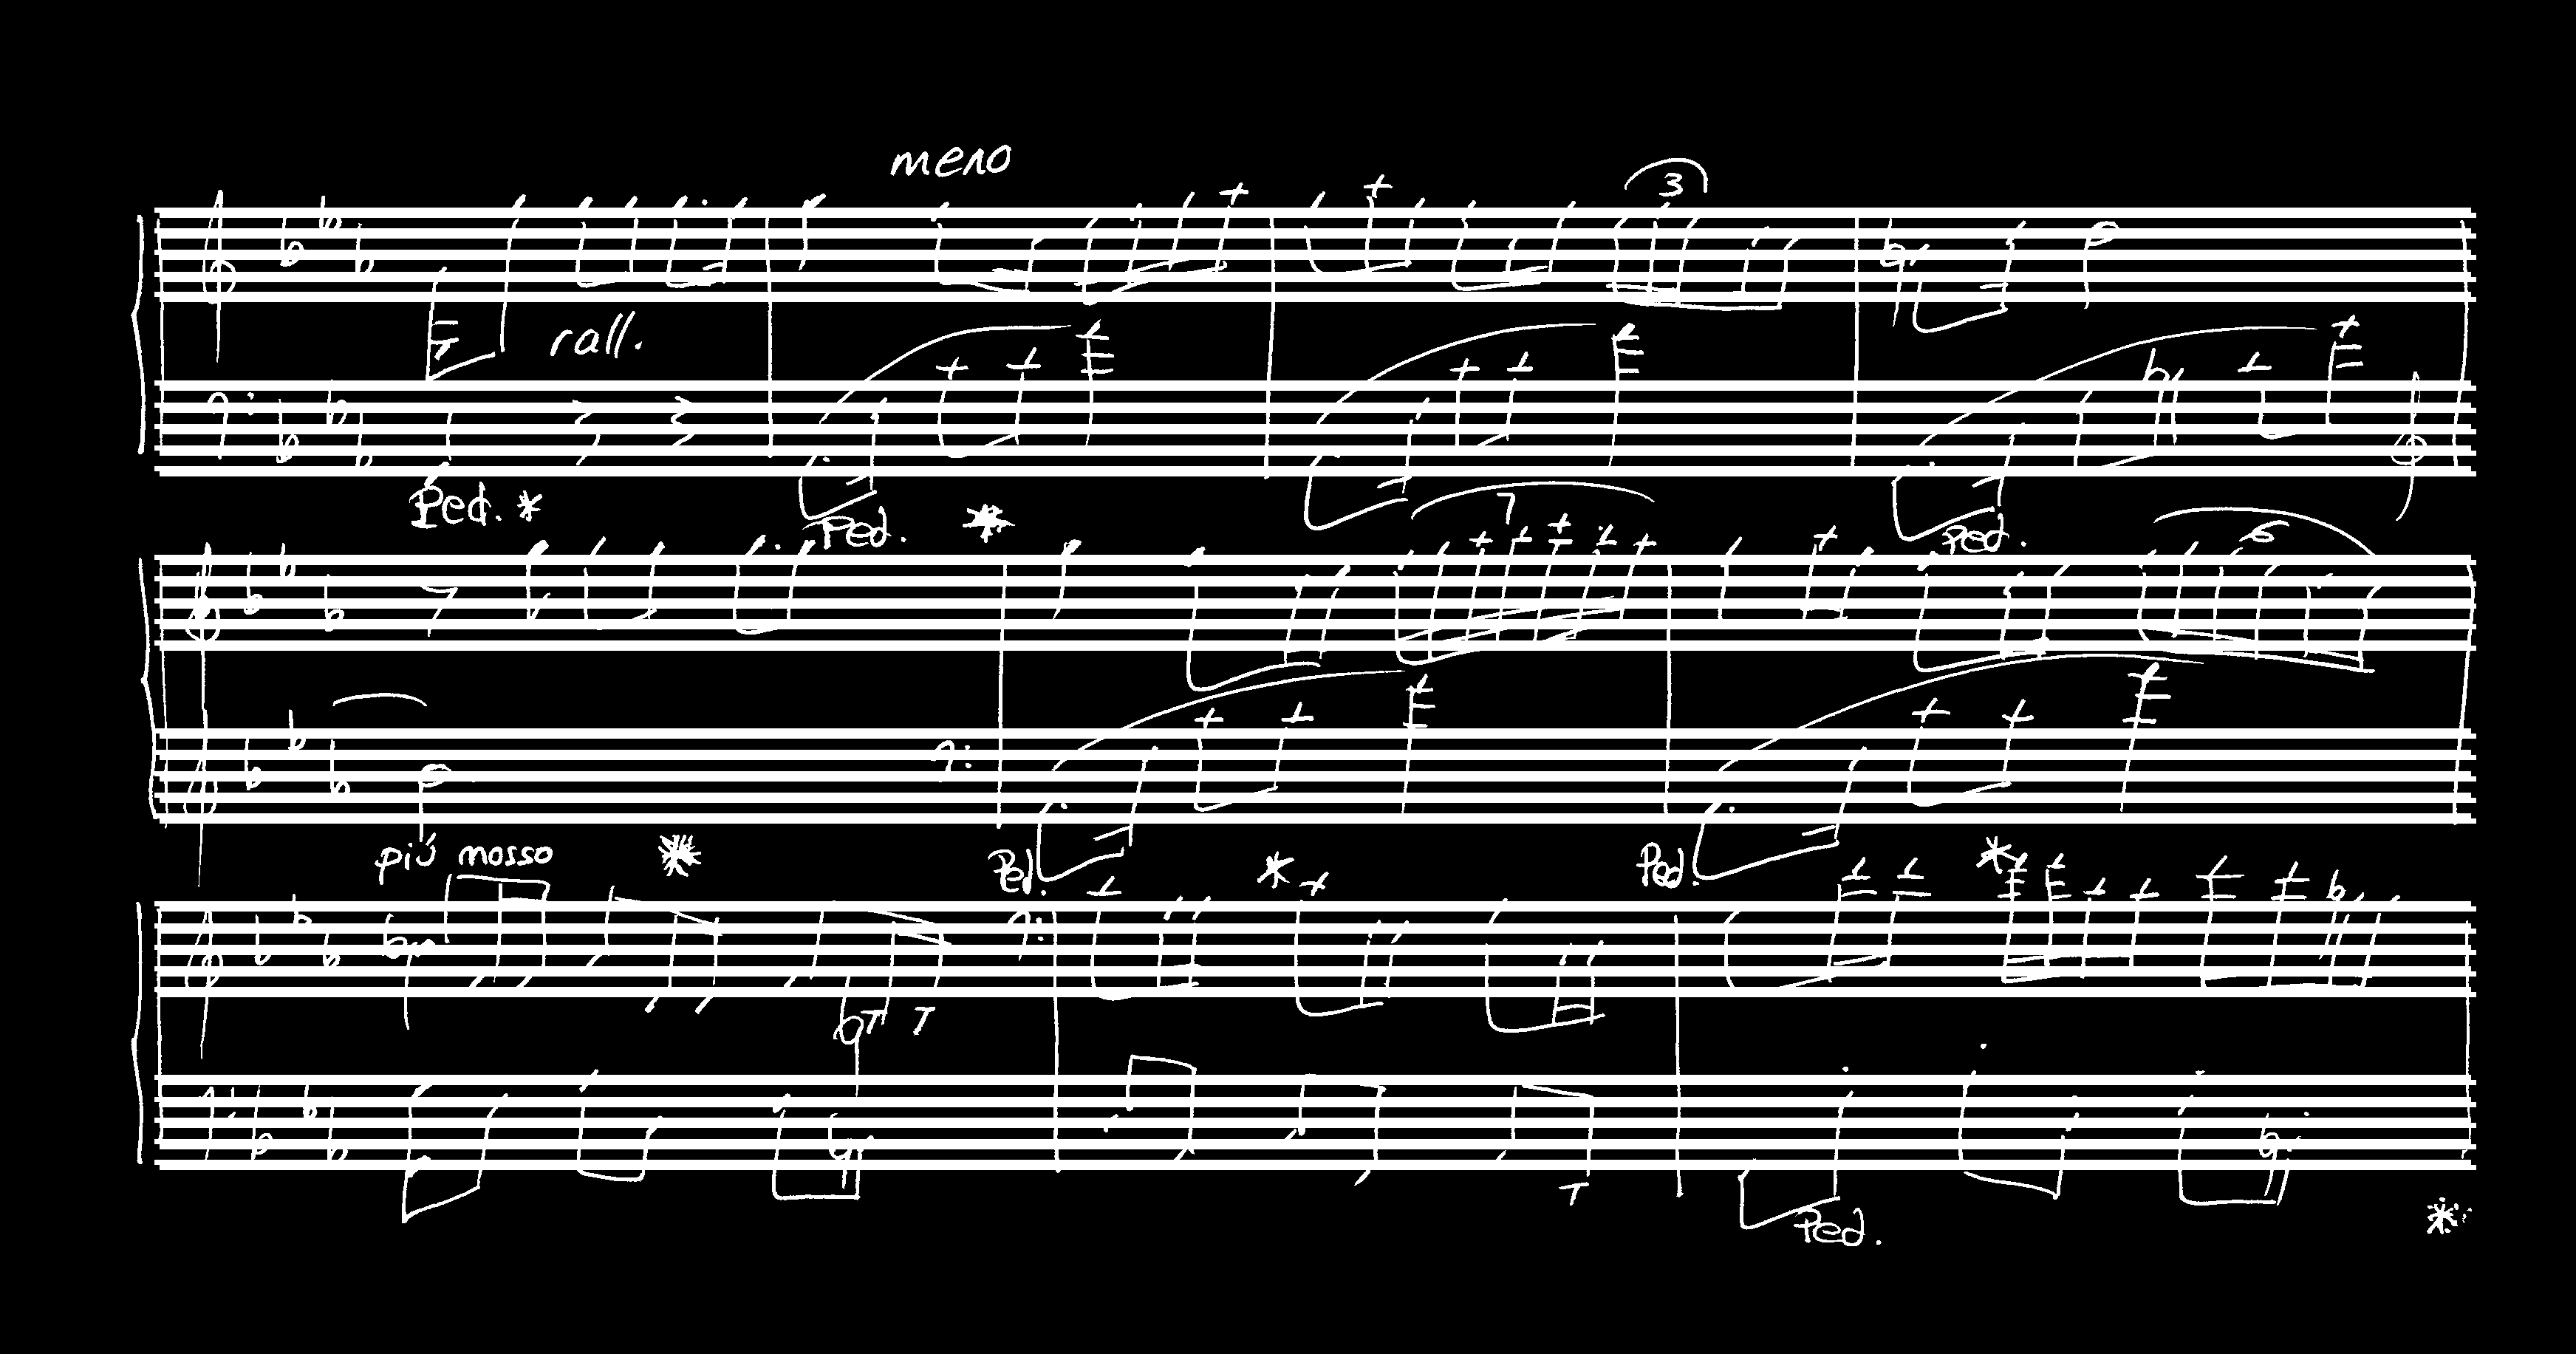 meno
3
rall.
Ped. *
Ped. *
7
Ped.
6
più mosso *
Ped. *
Ped. *
Ped. *